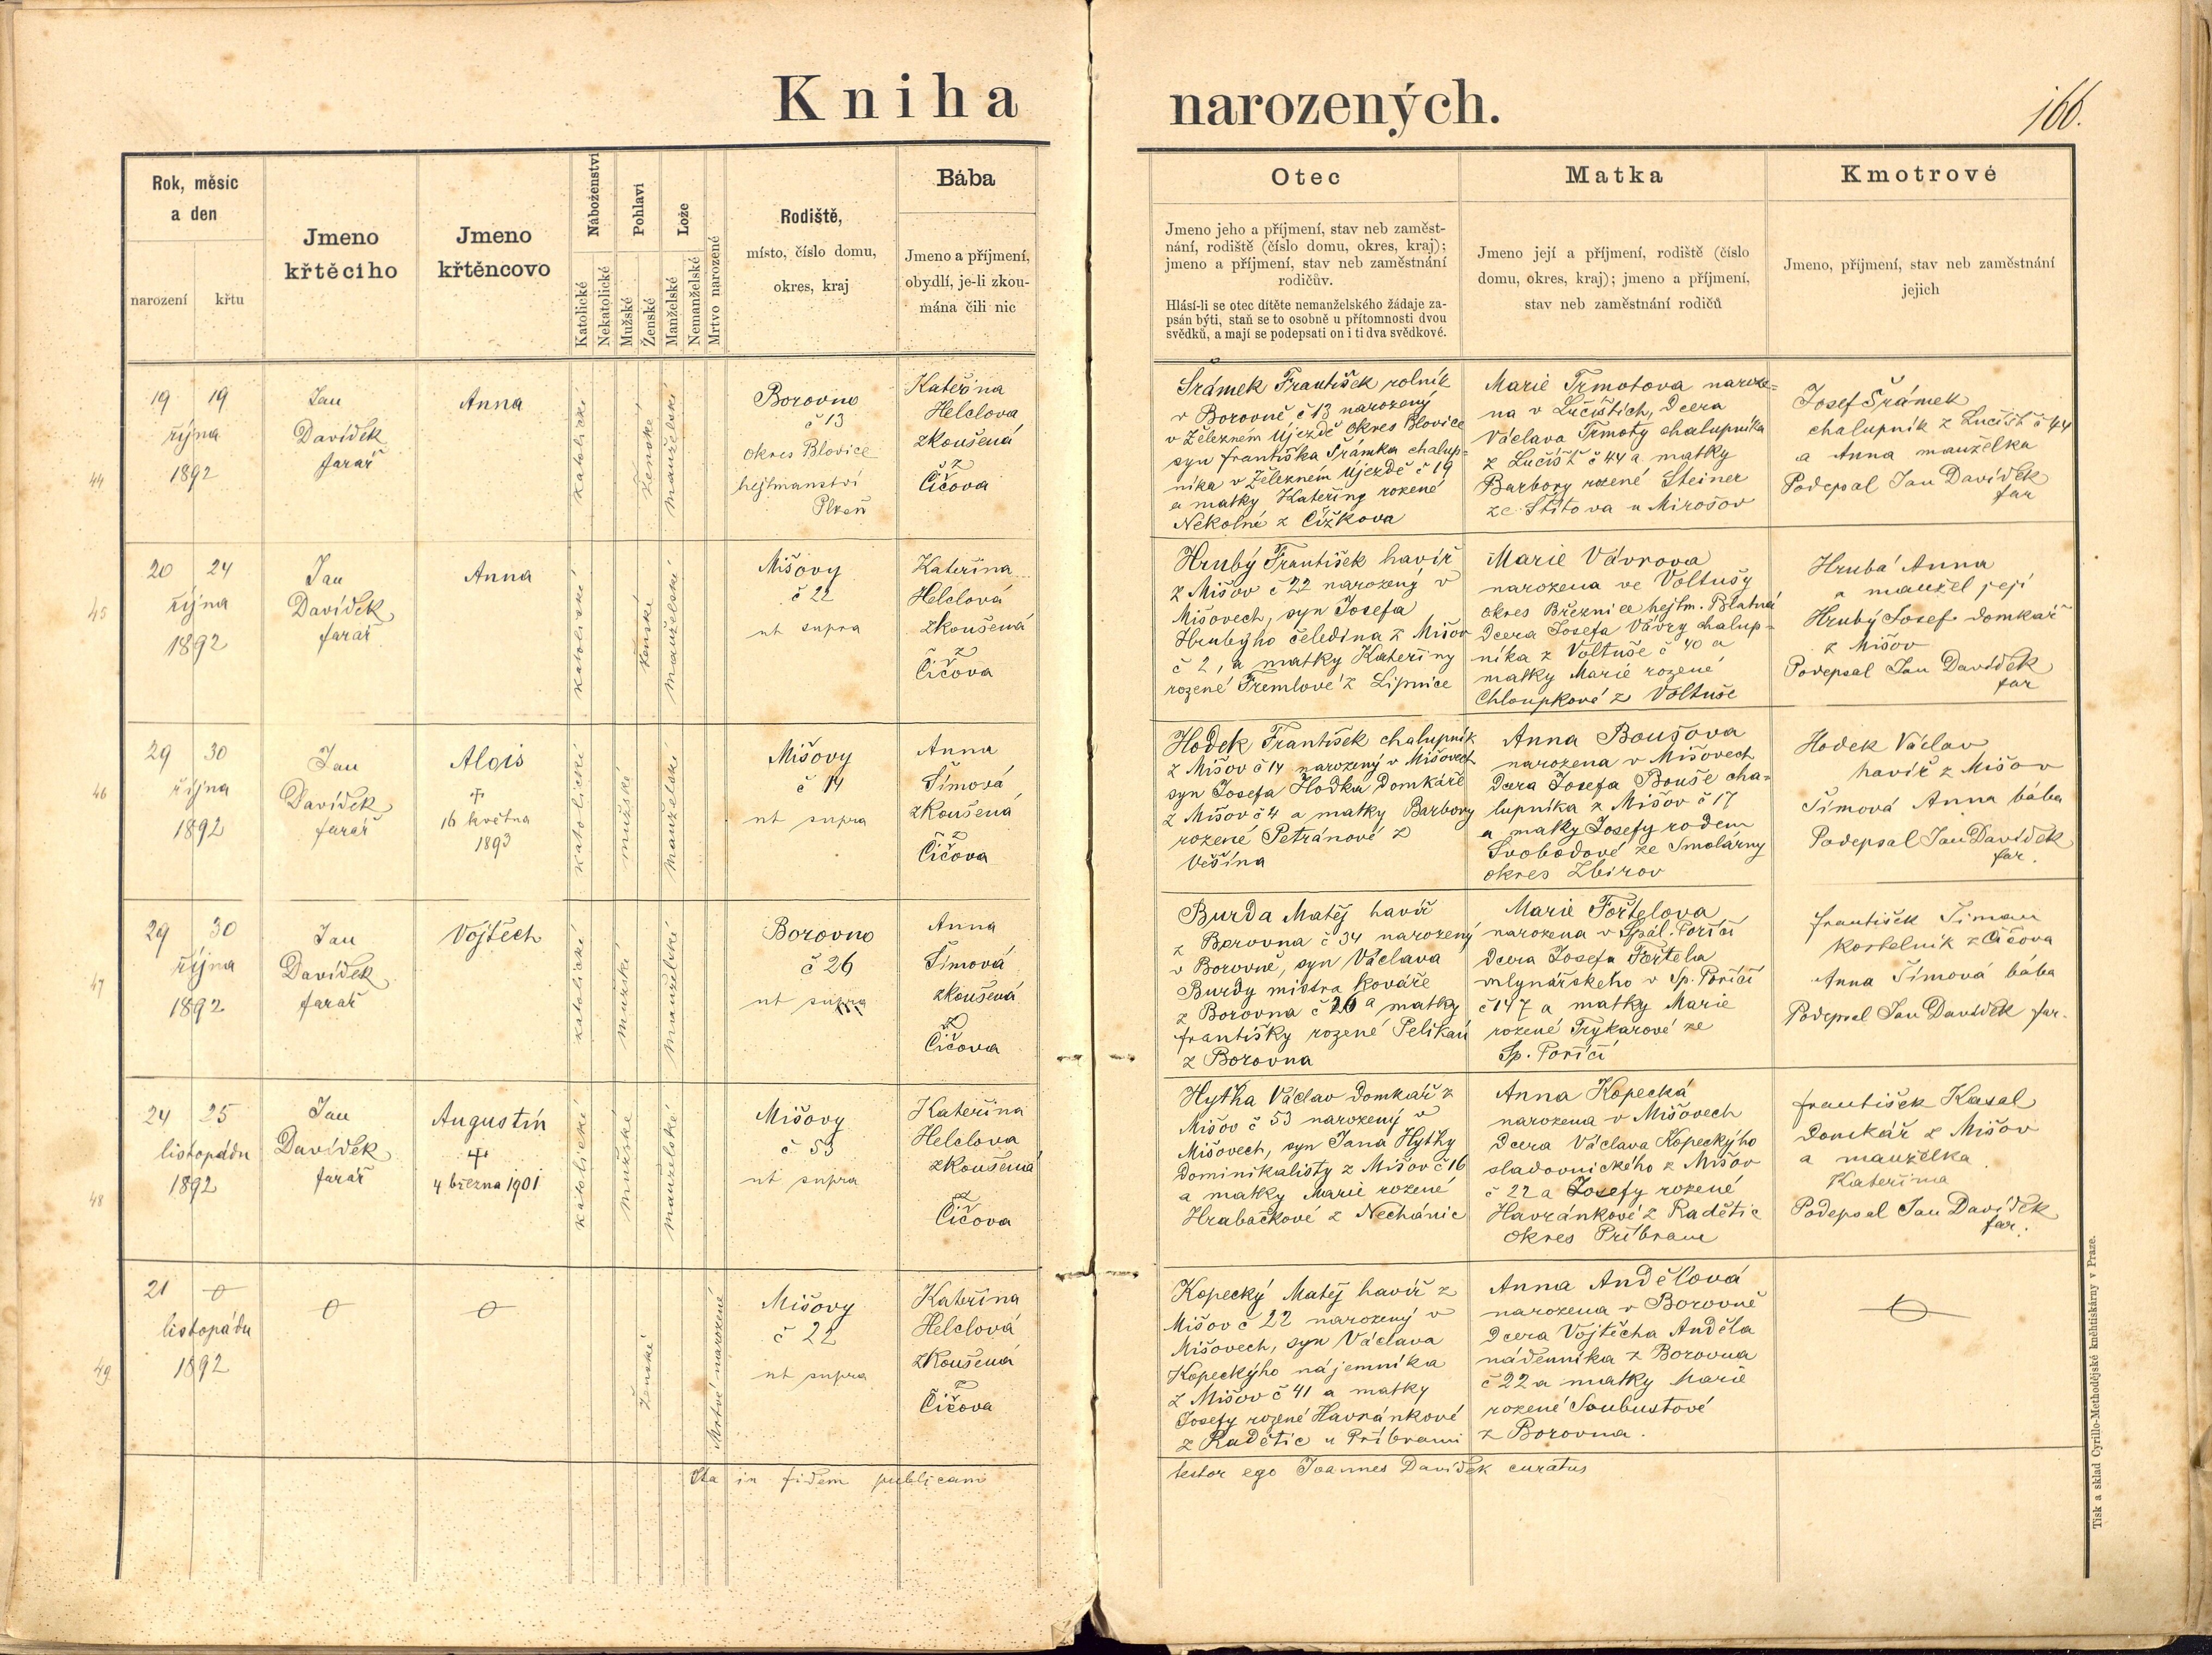 Kniha narozených.
166.
Rok, měsíc
a den
narození
křtu
Jmeno
křtěcího
Jmeno
křtěncovo
Náboženství
Katolické
Nekatolické
Pohlaví
Mužské
Ženské
Lože
Manželské
Nemanželské
Mrtvo narozené
Rodiště,
místo, číslo domu,
okres, kraj
Bába
Jmeno a příjmení,
obydlí, je-li zkou-
mána čili nic
Otec
Jmeno jeho a příjmení, stav neb zaměst-
nání, rodiště (číslo domu, okres, kraj);
jmeno a příjmení, stav neb zaměstnání
rodičův.
Hlásí-li se otec dítěte nemanželského žádaje za-
psán býti, staň se to osobně u přítomnosti dvou
svědků, a mají se podepsati on i ti dva svědkové.
Matka
Jmeno její a příjmení, rodiště (číslo
domu, okres, kraj); jmeno a příjmení,
stav neb zaměstnání rodičů
Kmotrové
Jmeno, příjmení, stav neb zaměstnání
jejich
44
19 19
října
1892
Jan
Davídek
farář
Anna
katolické
ženské
manželské
Borovno
č 13
okres Blovice
hejtmanství
Plzeň
Kateřina
Helclova
zkoušená
z
Číčova
Šrámek František rolník
v Borovně č 13 narozený
v Železném Újezdě okres Blovice
syn Františka Šrámka chalup-
níka v Železném Újezdě č 19
a matky Kateřiny rozené
Nekolné z Čížkova
Marie Trmotova naroze-
na v Lučištích, dcera
Václava Trmoty chalupníka
z Lučišť č 44 a matky
Barbory rozené Steiner
ze Štítova u Mirošov
Josef Šrámek
chalupník z Lučišť č 44
a Anna manželka
Podepsal Jan Davídek
far
45
20 24
října
1892
Jan
Davídek
farář
Anna
katolické
ženské
manželské
Mišovy
č 22
ut supra
Kateřina
Helclová
zkoušená
z
Číčova
Hrubý František havíř
z Mišov č 22 narozený v
Mišovech, syn Josefa
Hrubýho čeledína z Mišov
č 2, a matky Kateřiny
rozené Tremlové z Lipnice
Marie Vávrova
narozena ve Voltušy
okres Březnice hejtm. Blatná
dcera Josefa Vávry chalup-
níka z Voltuše č 40 a
matky Marie rozené
Chloupkové z Voltuše
Hrubá Anna
a manžel její
Hrubý Josef domkář
z Mišov
Podepsal Jan Davídek
far
46
29 30
října
1892
Jan
Davídek
farář
Alois
†
16 května
1893
katolické
mužské
manželské
Mišovy
č 14
ut supra
Anna
Šímová
zkoušená
z
Číčova
Hodek František chalupník
z Mišov č 14 narozený v Mišovech
syn Josefa Hodka domkáře
z Mišov č 4 a matky Barbory
rozené Petránové z
Věšína
Anna Boušova
narozena v Mišovech
dcera Josefa Bouše cha-
lupníka z Mišov č 17
a matky Josefy rodem
Svobodové ze Smolárny
okres Zbirov
Hodek Václav
havíř z Mišov
Šímová Anna bába
Podepsal Jan Davídek
far.
47
29 30
října
1892
Jan
Davídek
farář
Vojtěch
katolické
mužské
manželské
Borovno
č 26
ut supra
Anna
Šímová
zkoušená
z
Číčova
Burda Matěj havíř
z Borovna č 34 narozený
v Borovně, syn Václava
Burdy mistra kováře
z Borovna č 26 a matky
Františky rozené Pelikan
z Borovna
Marie Fořtelova
narozena v Spál. Poříčí
dcera Josefa Fořtela
mlynářského v Sp. Poříčí
č 147 a matky Marie
rozené Trykarové ze
Sp. Poříčí
František Šiman
kostelník z Číčova
Anna Šímová bába
Podepsal Jan Davídek far.
48
24 25
listopadu
1892
Jan
Davídek
farář
Augustín
†
4 března 1901
katolické
mužské
manželské
Mišovy
č 53
ut supra
Kateřina
Helclova
zkoušená
z
Číčova
Hytha Václav domkář z
Mišov č 53 narozený v
Mišovech, syn Jana Hythy
Dominikalisty z Mišov č 16
a matky Marie rozené
Hrabačkové z Nechánic
Anna Kopecká
narozena v Mišovech
dcera Václava Kopeckýho
sladovnického z Mišov
č 22 a Josefy rozené
Havránkové z Radětic
okres Příbram
František Kasal
domkář z Mišov
a manželka
Kateřina
Podepsal Jan Davídek
far.
49
21
listopádu
1892
ženské
Mrtvé narozené
Mišovy
č 22
ut supra
Kateřina
Helclová
zkoušená
z
Číčova
Kopecký Matěj havíř z
Mišov č 22 narozený v
Mišovech, syn Václava
Kopeckýho nájemníka
z Mišov č 41 a matky
Josefy rozené Havránkové
z Radětic u Příbrami
Anna Andělová
narozena v Borovně
dcera Vojtěcha Anděla
nádenníka z Borovna
č 22 a matky Marie
rozené Soubustové
z Borovna.
Ita in fidem publicam
testor ego Joannes Davídek curatus
Tisk a sklad Cyrillo-Methodějské kněhtiskárny v Praze.